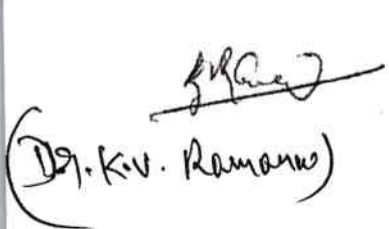 (Dr. K.V. Ramana)